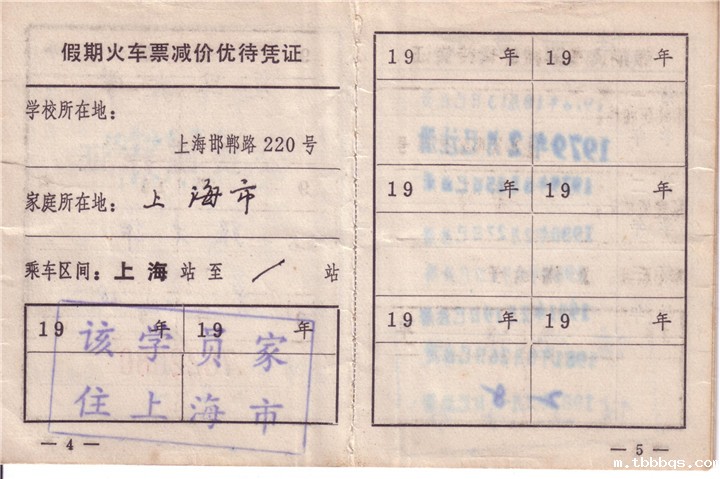 假期火车票减价优待凭证
学校所在地：
上海邯郸路 220 号
家庭所在地：上海市
乘车区间：上海站至／站
19 年 19 年
该学员家
住上海市
— 4 —
19 年 19 年
1979年2月已注册
19 年 19 年
19 年 19 年
— 5 —
m.tbbbqs.com